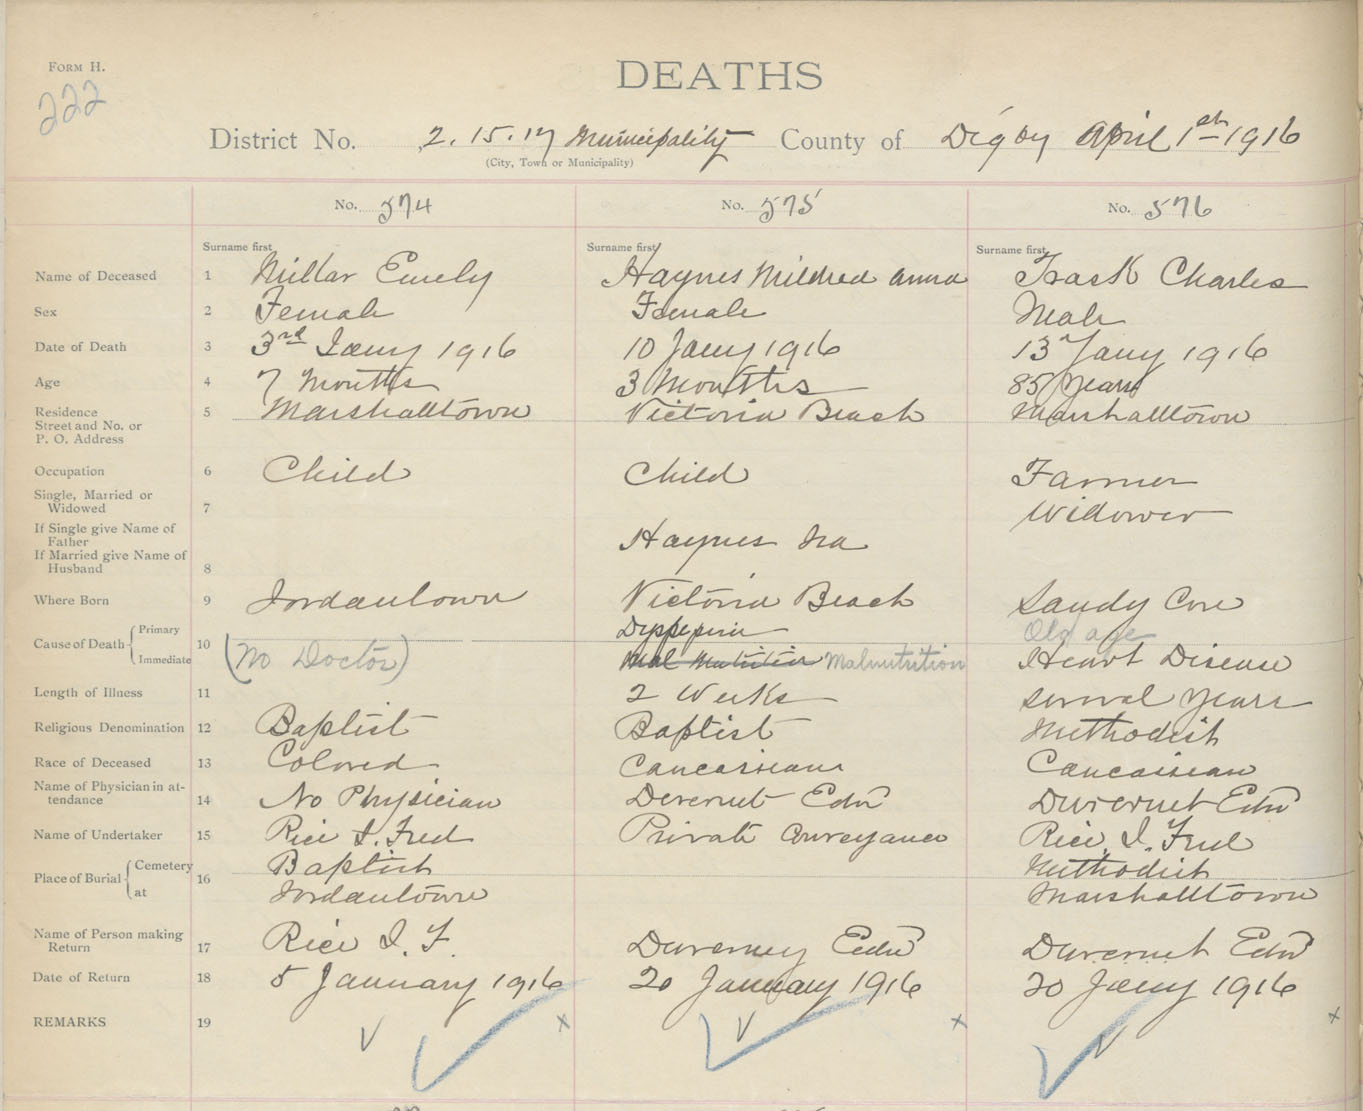 FORM H.
222
DEATHS
District No. 2. 15. 17 Municipality County of Digby April 1st 1916
(City, Town or Municipality)
No. 574 No. 575 No. 576
Surname first Surname first Surname first
Name of Deceased 1 Millar Emely Haynes Mildred Anna Trask Charles
Sex 2 Female Female Male
Date of Death 3 3rd Jany 1916 10 Jany 1916 13 Jany 1916
Age 4 7 Months 3 Months 85 Years
Residence 5 Marshalltown Victoria Beach Marshalltown
Street and No. or
P. O. Address
Occupation 6 Child Child Farmer
Single, Married or
Widowed 7 Widower
If Single give Name of
Father Haynes Ira
If Married give Name of
Husband 8
Where Born 9 Jordantown Victoria Beach Sandy Cove
Cause of Death { Primary Dyspepsia Old age
10
Immediate (No Doctor) Mal Nutrition Malnutrition Heart Disease
Length of Illness 11 2 Weeks several years
Religious Denomination 12 Baptist Baptist Methodist
Race of Deceased 13 Colored Caucasian Caucasian
Name of Physician in at-
tendance 14 No Physician Duvernet Edw Duvernet Edw
Name of Undertaker 15 Rice I. Fred Private Conveyance Rice I. Fred
Place of Burial { Cemetery 16 Baptist Methodist
at Jordantown Marshalltown
Name of Person making
Return 17 Rice I. F. Duverney Edw Duvernet Edw
Date of Return 18 5 January 1916 20 January 1916 20 Jany 1916
REMARKS 19